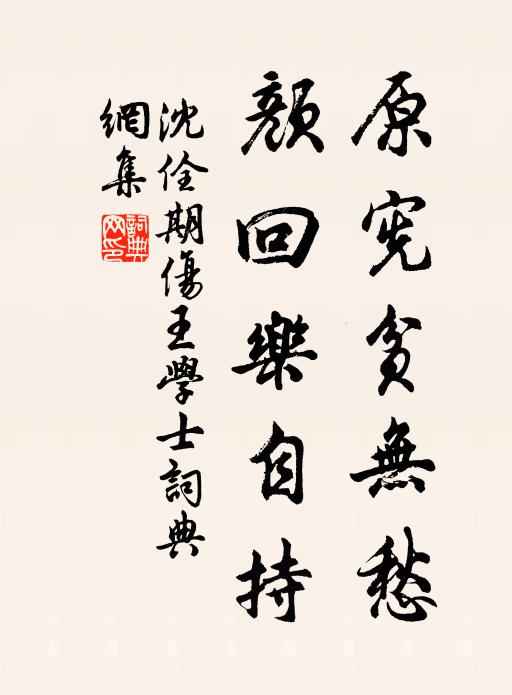 原宪贫無愁
顔回樂自持
沈佺期傷王學士詞典
網集
詞典
网印